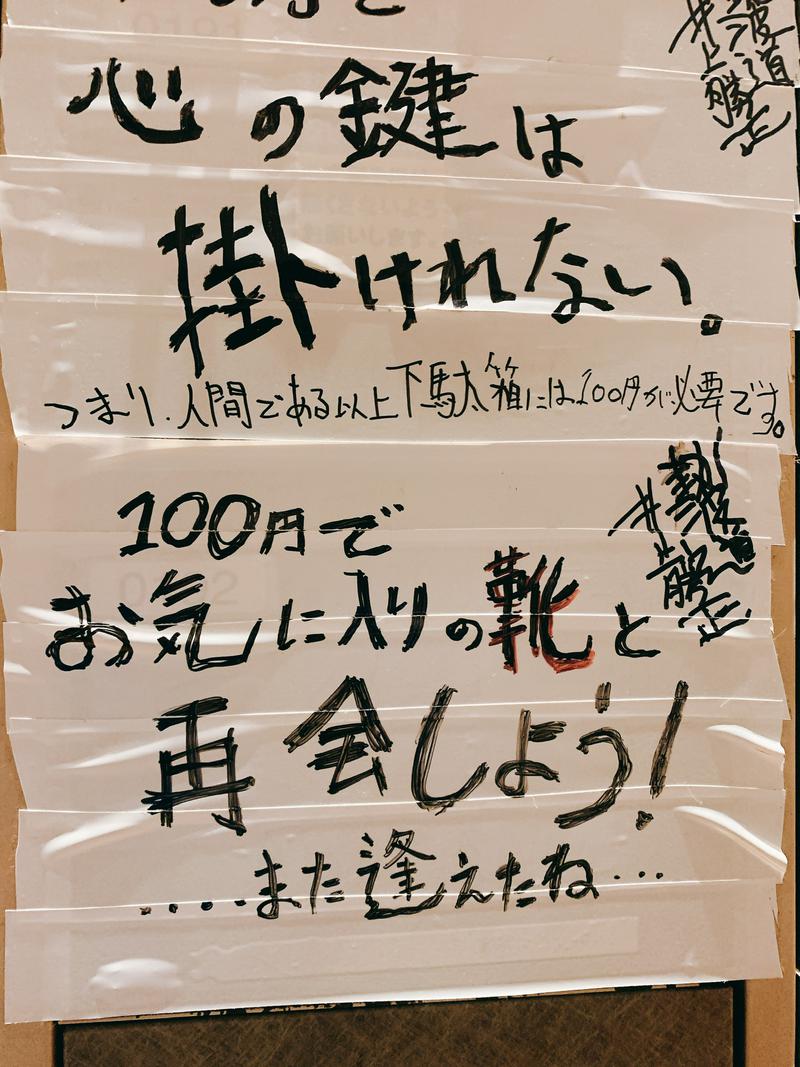 心の鍵は
掛けれない。
つまり、人間である以上下駄箱には100円が必要です。
井上勝正
100円で
お気に入りの靴と
井上勝正
再会しよう!
....また逢えたね...